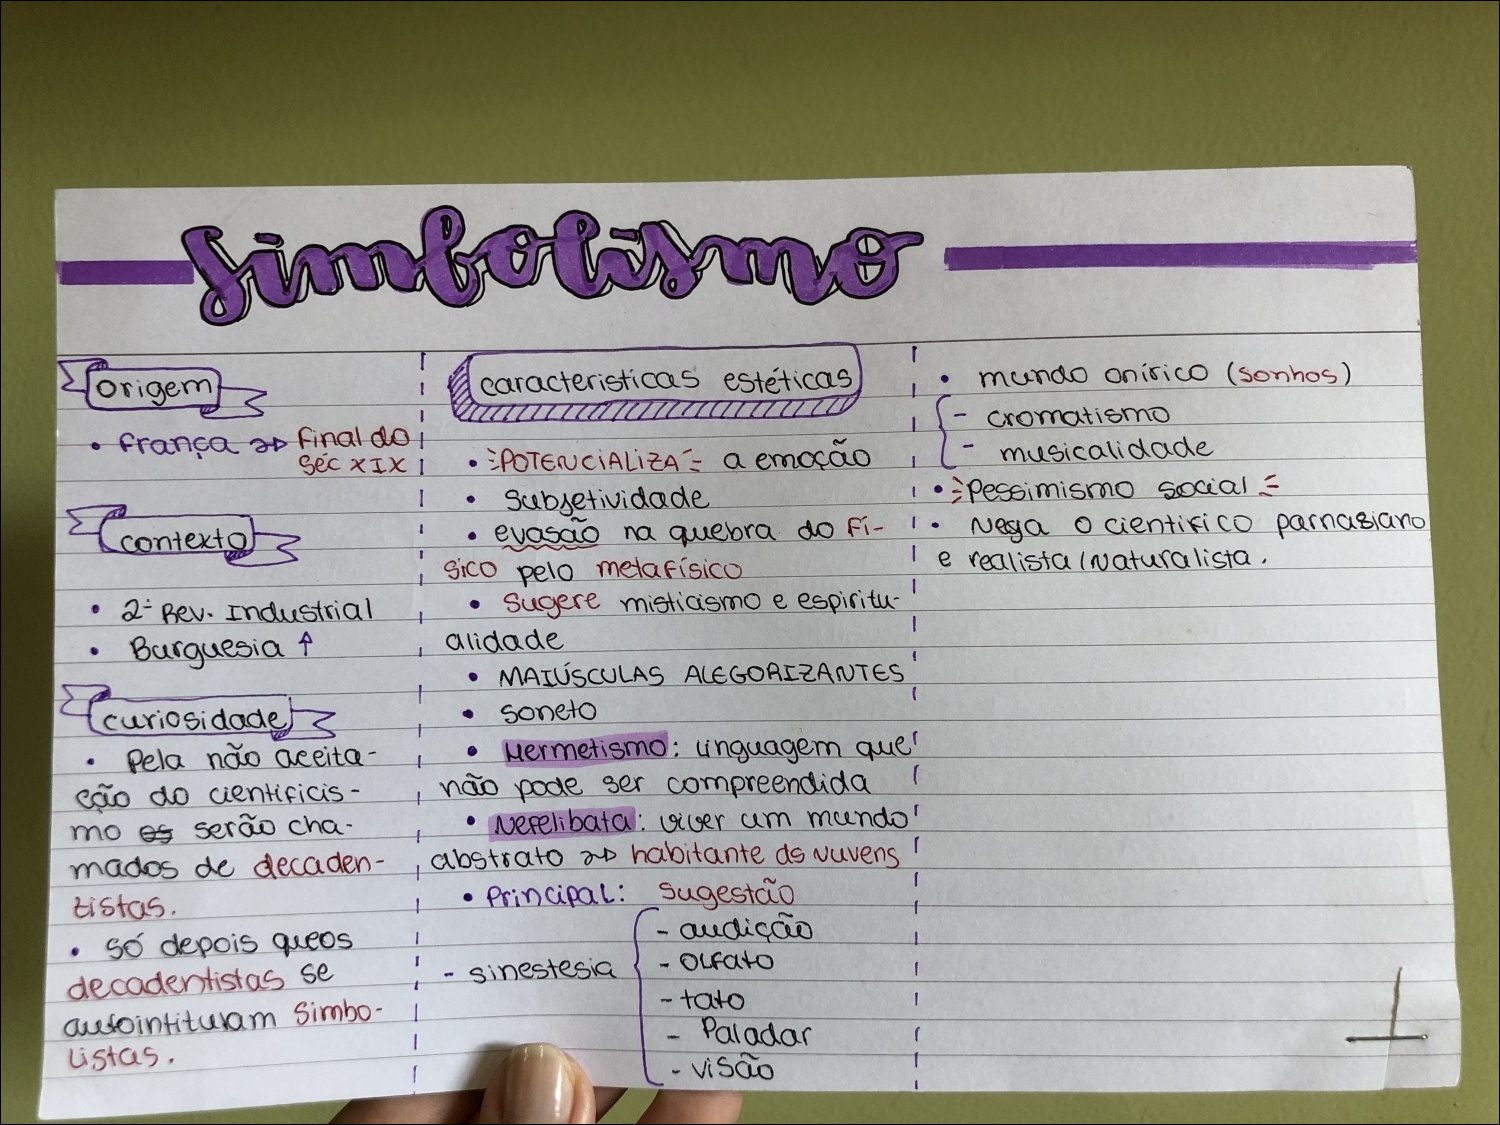 Simbolismo
origem
• França → final do
séc XIX
contexto
• 2ª Rev. Industrial
• Burguesia ↑
curiosidade
• Pela não aceita-
ção do cientificis-
mo os serão cha-
mados de decaden-
tistas.
• só depois que os
decadentistas se
autointitulam Simbo-
listas.
características estéticas
• POTENCIALIZA a emoção
• Subjetividade
• evasão na quebra do fí-
sico pelo metafísico
• Sugere misticismo e espiritu-
alidade
• MAIÚSCULAS ALEGORIZANTES
• soneto
• Hermetismo: linguagem que
não pode ser compreendida
• Nefelibata: viver um mundo
abstrato → habitante ds nuvens
• Principal: Sugestão
- sinestesia
- audição
- olfato
- tato
- Paladar
- visão
• mundo onírico (sonhos)
- cromatismo
- musicalidade
• Pessimismo social
• Nega o científico parnasiano
e realista/Naturalista.